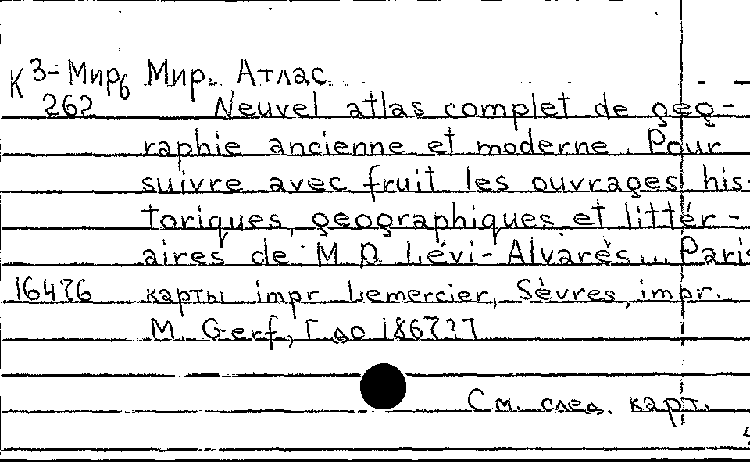 К 3-Мир6 Мир. Атлас.
262 Neuvel atlas complet de géog-
raphie ancienne et moderne. Pour
suivre avec fruit les ouvrages his-
toriques, geographiques et littér-
aires de M D. Lévi-Alvarès... Paris
16476 карты impr Lemercier, Sèvres, impr.
M. Cerf, [до 1867?]
См. след. карт.